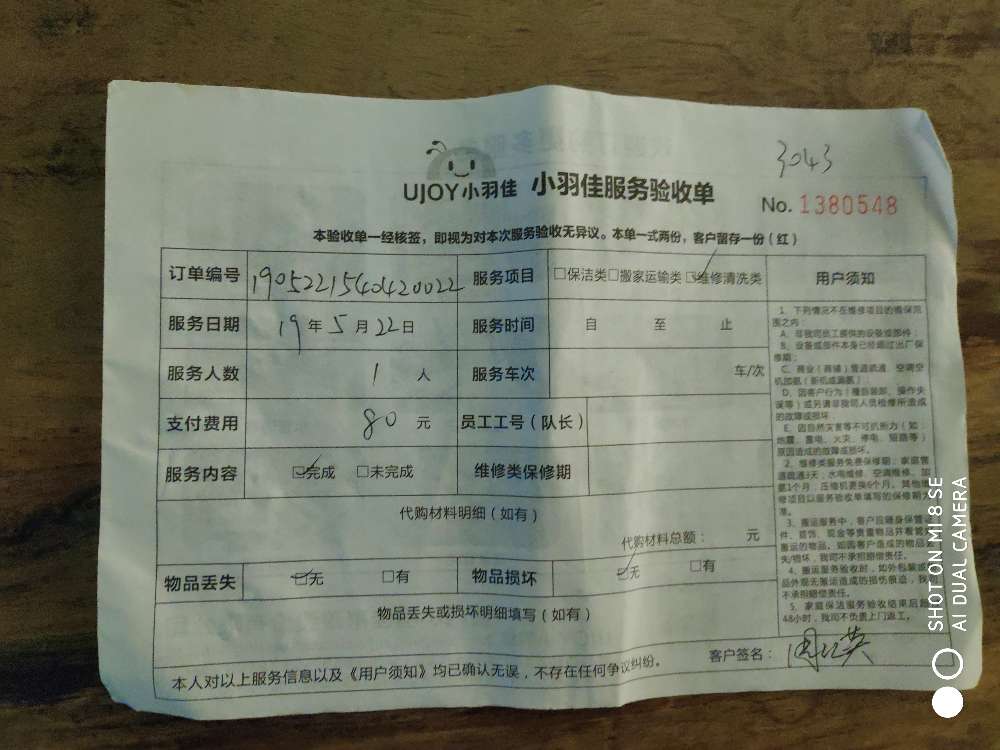 3043
UJOY小羽佳 小羽佳服务验收单
No. 1380548
本验收单一经核签，即视为对本次服务验收无异议。本单一式两份，客户留存一份（红）
订单编号 1905221540420022 服务项目 □保洁类□搬家运输类☑维修清洗类 用户须知
服务日期 19年5月22日 服务时间 自 至 止
服务人数 1 人 服务车次 车/次
支付费用 80 元 员工工号（队长）
服务内容 ☑完成 □未完成 维修类保修期
代购材料明细（如有）
代购材料总额： 元
物品丢失 ☑无 □有 物品损坏 ☑无 □有
物品丢失或损坏明细填写（如有）
本人对以上服务信息以及《用户须知》均已确认无误，不存在任何争议纠纷。 客户签名：
1、下列情况不在维修项目的保保范
围之内：
A、非我司员工提供的设备或部件；
B、设备或部件本身已经超过出厂保
修期；
C、商业（商铺）管道疏通、空调空
机加氨（新机或漏氨）；
D、因客户行为（擅自装卸、操作失
误等）或另请非我司人员检修所造成
的故障或损坏
E、因自然灾害等不可抗拒力（如：
地震、雷电、火灾、停电、短路等）
原因造成的故障或损坏。
2、维修类服务免费保修期：家庭管
道疏通3天，水电维修、空调维修、加
氨1个月，压缩机更换6个月。其他维
修项目以服务验收单填写的保修期为
准。
3、搬运服务中，客户应随身保管
件、首饰、现金等贵重物品并看管
搬运的物品。如因客户造成的物品
失/损坏，我司不承担赔偿责任。
4、搬运服务验收时，如外包装或
品外观无搬运造成的损伤痕迹，我
不承担赔偿责任。
5、家庭保洁服务验收结束后超
48小时，我司不负责上门返工。
SHOT ON MI 8 SE
AI DUAL CAMERA